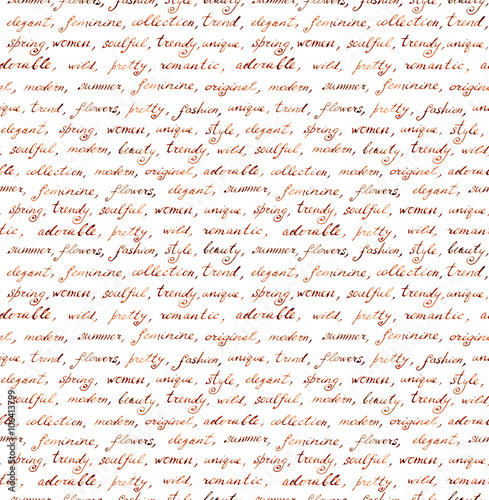 summer, flowers, fashion, style, beauty, summer, flowers, fashion, style, beauty,
elegant, feminine, collection, trend, elegant, feminine, collection, trend,
spring, women, soulful, trendy, unique, spring, women, soulful, trendy, unique,
adorable, wild, pretty, romantic, adorable, wild, pretty, romantic, a
modern, summer, feminine, original, modern, summer, feminine, original,
ique, trend, flowers, pretty, fashion, unique, trend, flowers, pretty, fashion, un
elegant, spring, women, unique, style, elegant, spring, women, unique, style,
soulful, modern, beauty, trendy, wild, soulful, modern, beauty, trendy, wild,
ble, collection, modern, original, adorable, collection, modern, original, adora
mmer, feminine, flowers, elegant, summer, feminine, flowers, elegant, su
spring, trendy, soulful, women, unique, spring, trendy, soulful, women, unique,
tic, adorable, pretty, wild, romantic, adorable, pretty, wild, roman
summer, flowers, fashion, style, beauty, summer, flowers, fashion, style, beauty,
elegant, feminine, collection, trend, elegant, feminine, collection, trend,
spring, women, soulful, trendy, unique, spring, women, soulful, trendy, unique,
adorable, wild, pretty, romantic, adorable, wild, pretty, romantic, a
modern, summer, feminine, original, modern, summer, feminine, original,
ique, trend, flowers, pretty, fashion, unique, trend, flowers, pretty, fashion, un
elegant, spring, women, unique, style, elegant, spring, women, unique, style,
soulful, modern, beauty, trendy, wild, soulful, modern, beauty, trendy, wild,
collection, modern, original, adorable, collection, modern, original, adora
feminine, flowers, elegant, summer, feminine, flowers, elegant, su
spring, trendy, soulful, women, unique, spring, trendy, soulful, women, unique,
adorable, pretty, wild, romantic, adorable, pretty, wild, roman
summer, flowers, fashion, style, beauty, summer, flowers, fashion, style, beauty,
109413799
Adobe Stock